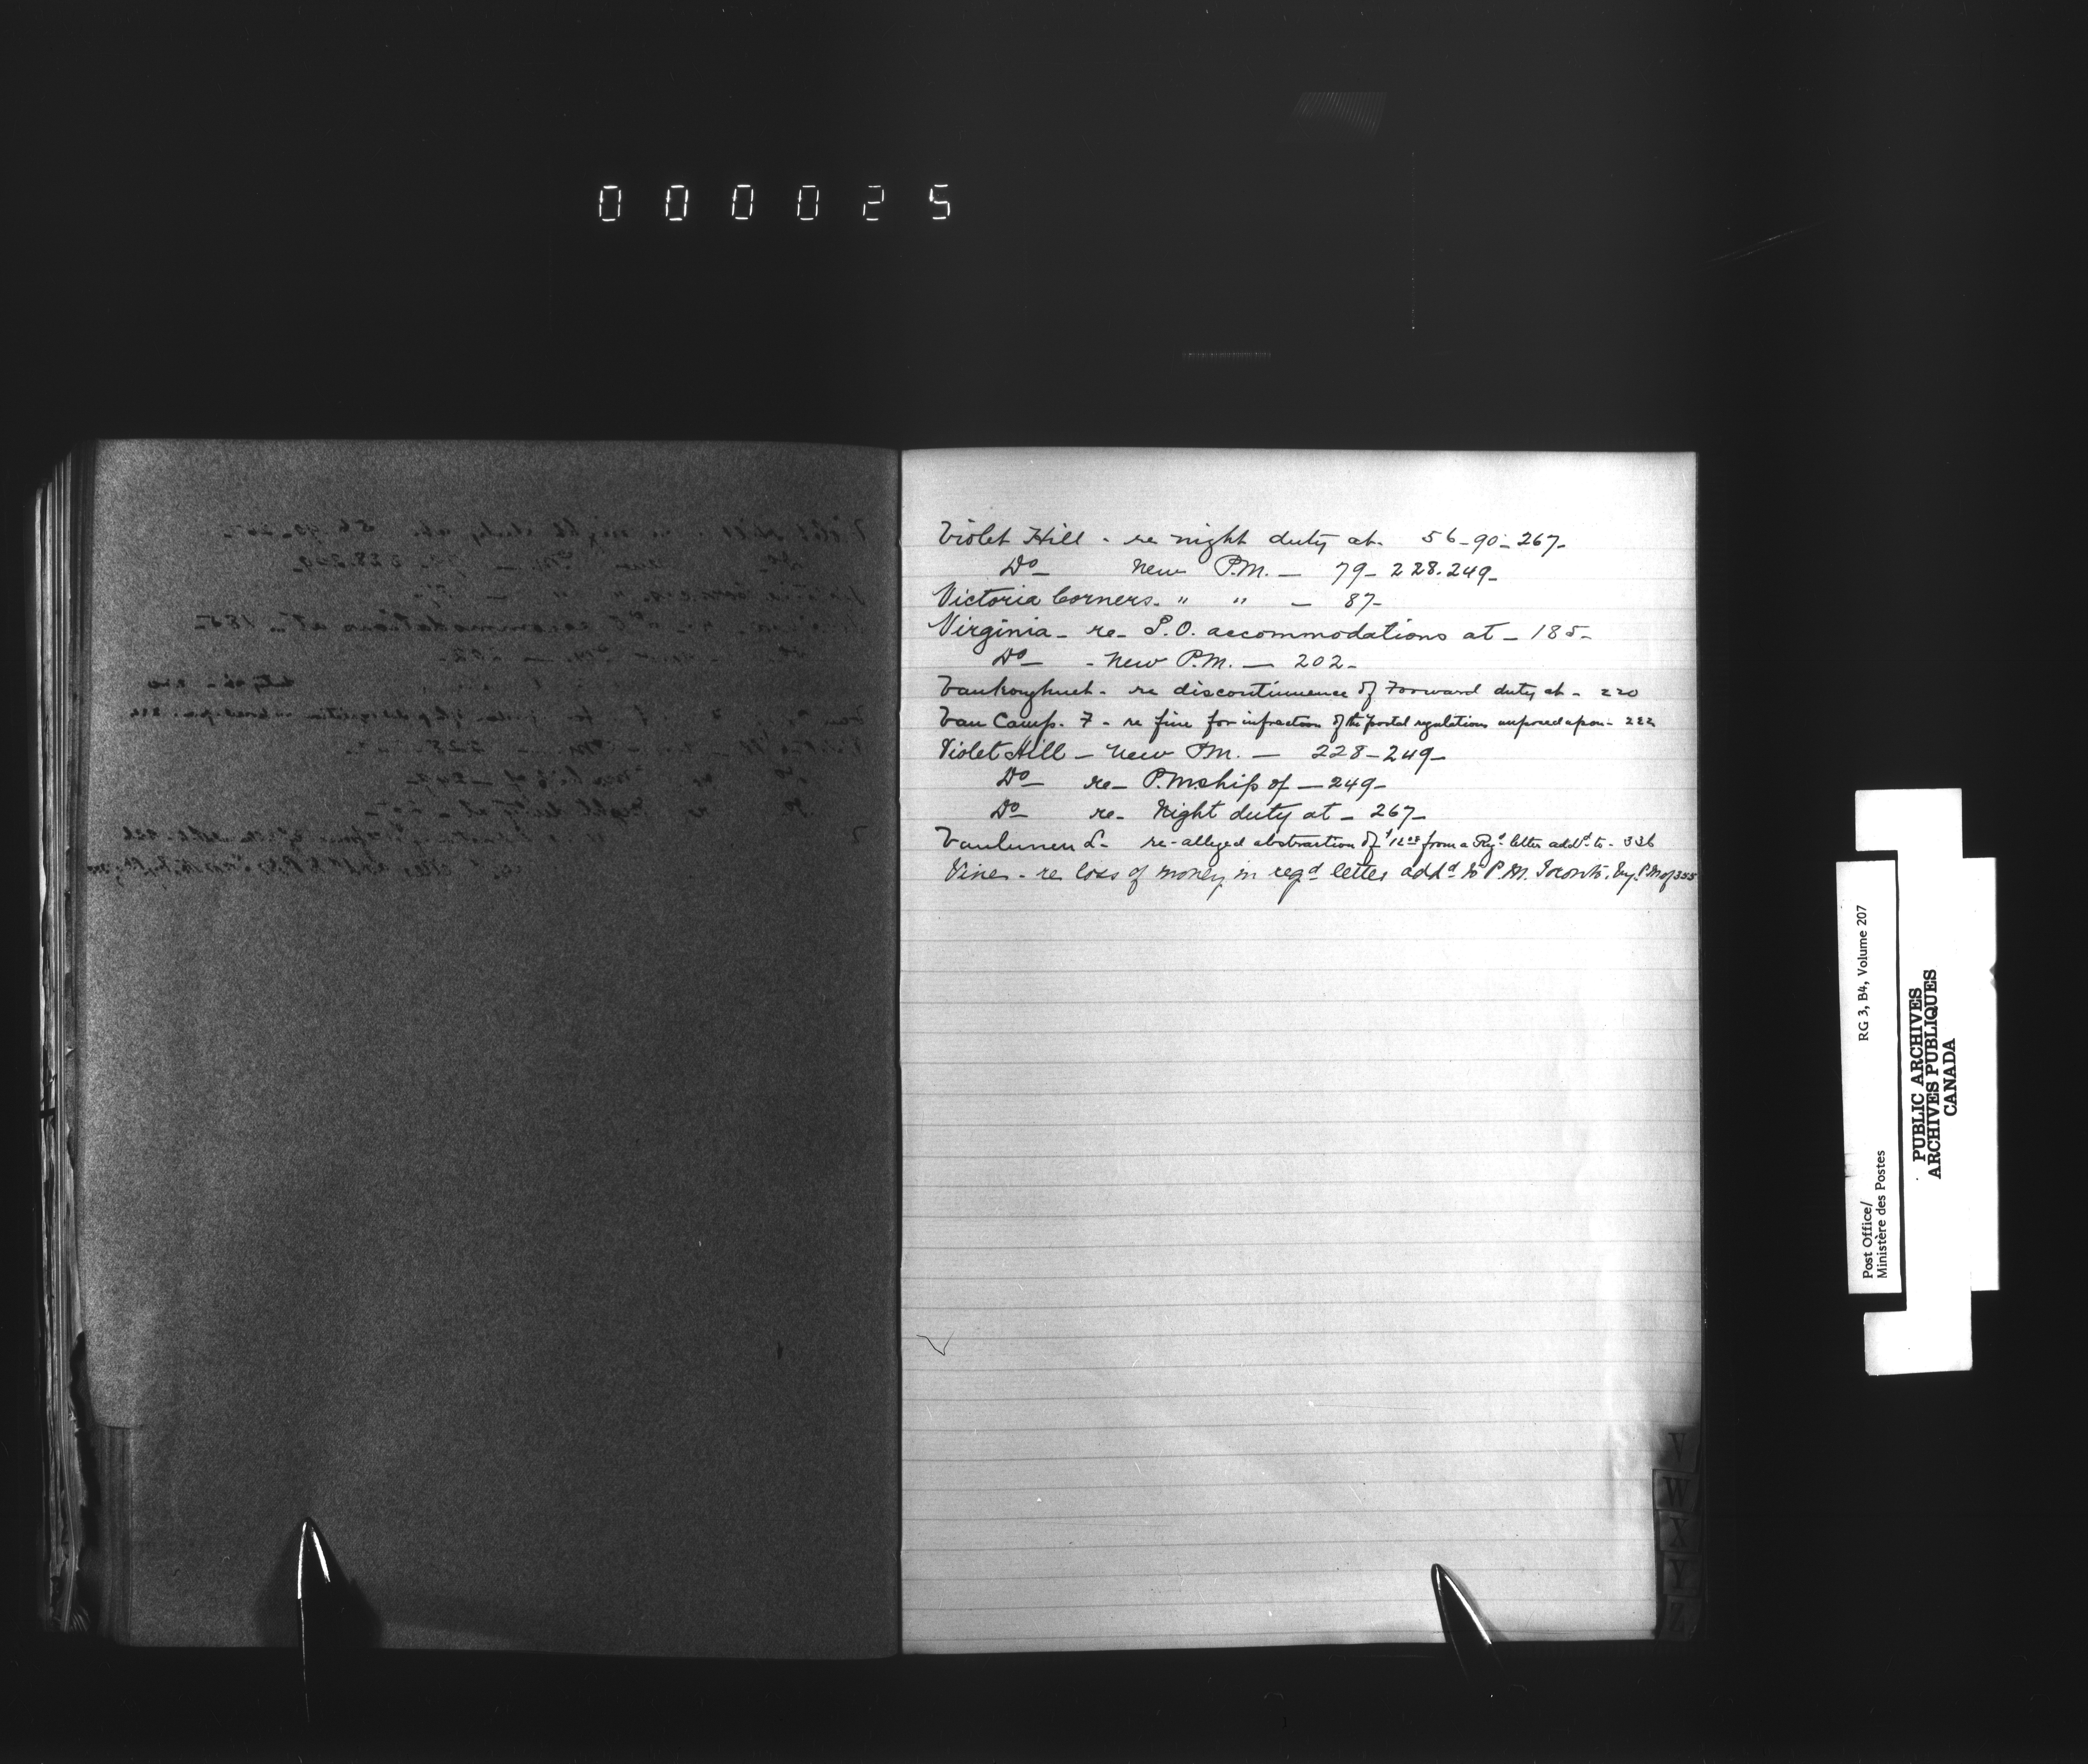 000025
Violet Hill - re night duty at - 56-90-267-
Do - New P.M. - 79-228.249-
Victoria Corners. " " - 87-
Virginia - re - P.O. accommodations at - 185-
Do - - New P.M. - 202-
Vankoughnet - re discontinuence of Forward duty at - 220
Van Camp. F - re fine for infraction of the postal regulations imposed upon - 222
Violet Hill - New P.M. - 228-249-
Do - re - P.M.ship of - 249-
Do - re - Night duty at - 267-
re - alleged abstraction of $12.00 from a Regd letter addd to - 336
Vine - re loss of money in regd letter addd to P.M. Toronto, by P.M of 355
V
W
X
Y
Z
Post Office/
Ministère des Postes
RG 3, B4, Volume 207
PUBLIC ARCHIVES
ARCHIVES PUBLIQUES
CANADA